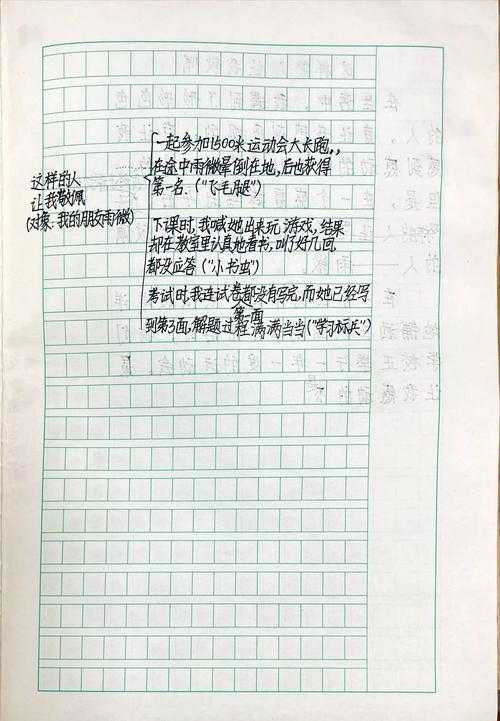 一起参加1500米运动会大长跑,,
在途中雨微晕倒在地,后也获得
第一名.("飞毛腿")
这样的人
让我敬佩
(对象:我的朋友雨微)
下课时,我喊她出来玩游戏,结果
却在教室里认真地看书,叫了好几回
都没应答("小书虫")
考试时,我连试卷都没有写完,而她已经写
第一面
到第3面,解题过程满满当当("学习标兵")